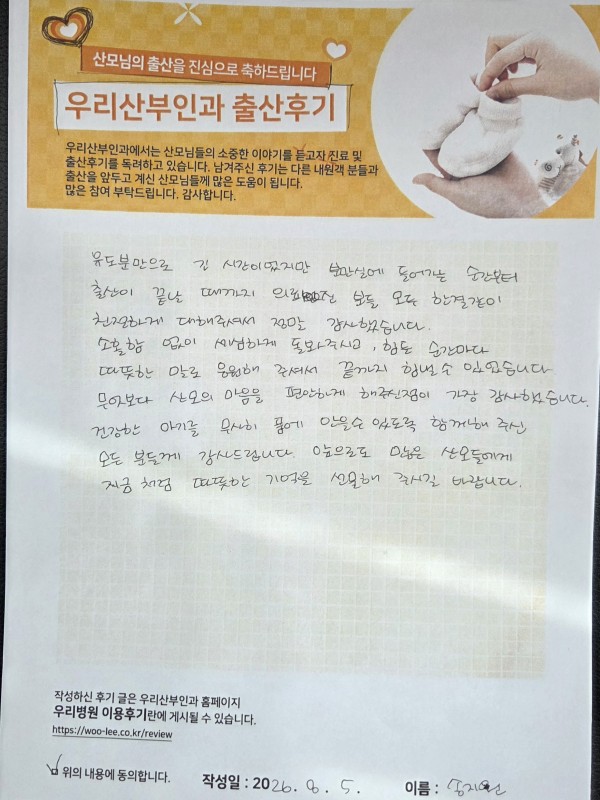 산모님의 출산을 진심으로 축하드립니다
우리산부인과 출산후기
우리산부인과에서는 산모님들의 소중한 이야기를 듣고자 진료 및
출산후기를 독려하고 있습니다. 남겨주신 후기는 다른 내원객 분들과
출산을 앞두고 계신 산모님들께 많은 도움이 됩니다.
많은 참여 부탁드립니다. 감사합니다.
유도분만으로 긴 시간이었지만 분만실에 들어가는 순간부터
출산이 끝날 때까지 의료진 분들 모두 한결같이
친절하게 대해주셔서 정말 감사했습니다.
소홀함 없이 세심하게 돌봐주시고, 힘든 순간마다
따뜻한 말로 응원해 주셔서 끝까지 힘낼수 있었습니다
무엇보다 산모의 마음을 편안하게 해주신점이 가장 감사했습니다.
건강한 아기를 무사히 품에 안을수 있도록 함께해 주신
모든 분들께 감사드립니다. 앞으로도 많은 산모들에게
지금처럼 따뜻한 기억을 선물해 주시길 바랍니다.
작성하신 후기 글은 우리산부인과 홈페이지
우리병원 이용후기란에 게시될 수 있습니다.
https://woo-lee.co.kr/review
위의 내용에 동의합니다.
작성일 : 2026. 8. 5.
이름 :